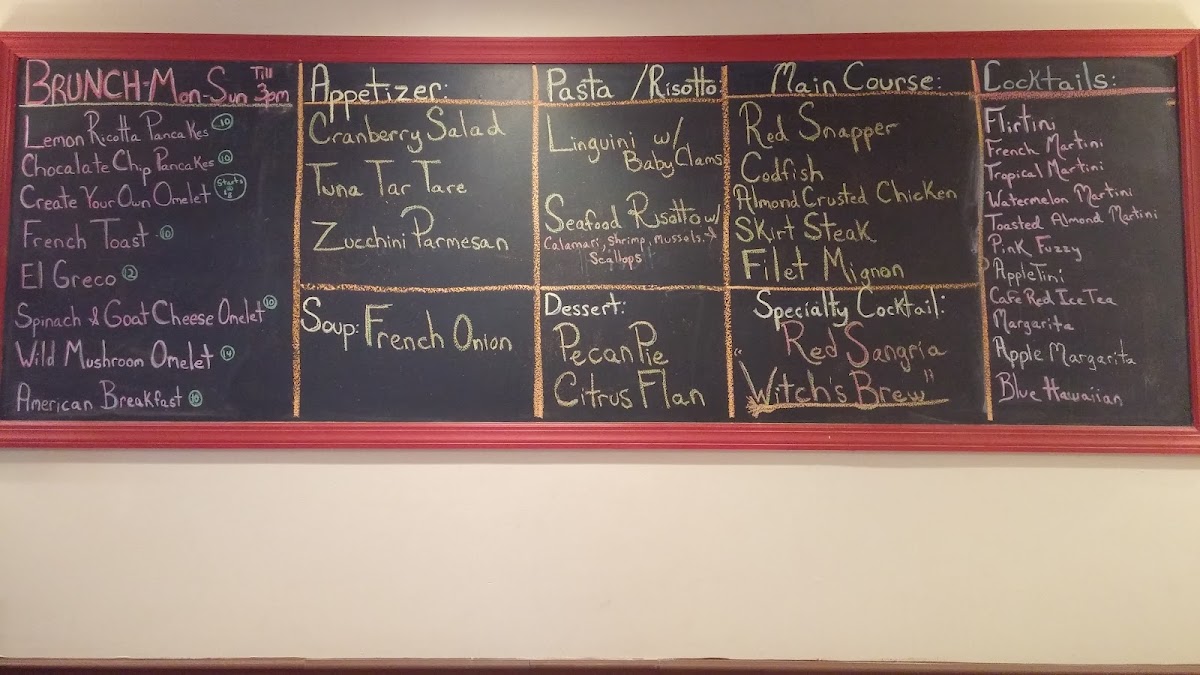 BRUNCH-Mon-Sun Till 3pm
Lemon Ricotta Pancakes 10
Chocalate Chip Pancakes 10
Create Your Own Omelet Starts 8
French Toast -10
El Greco 12
Spinach & Goat Cheese Omelet 10
Wild Mushroom Omelet 14
American Breakfast 10
Appetizer:
Cranberry Salad
Tuna Tar Tare
Zucchini Parmesan
Soup: French Onion
Pasta /Risotto:
Linguini w/
Baby Clams
Seafood Risotto w/
Calamari, Shrimp, Mussels.
Scallops
Dessert:
Pecan Pie
Citrus Flan
Main Course:
Red Snapper
Codfish
Almond Crusted Chicken
Skirt Steak
Filet Mignon
Specialty Cocktail:
Red Sangria
"Witch's Brew"
Cocktails:
Flirtini
French Martini
Tropical Martini
Watermelon Martini
Toasted Almond Martini
Pink Fuzzy
AppleTini
Cafe Red Ice Tea
Margarita
Apple Margarita
Blue Hawaiian